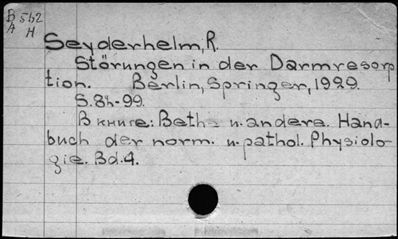 B 562
A H
Seyderhelm, R.
Störungen in der Darmresorp
tion. Berlin, Springer, 1929.
S. 84-99.
В книге: Bethe u. andere. Hand-
buch der norm. u. pathol. Physiolo-
gie. Bd. 4.